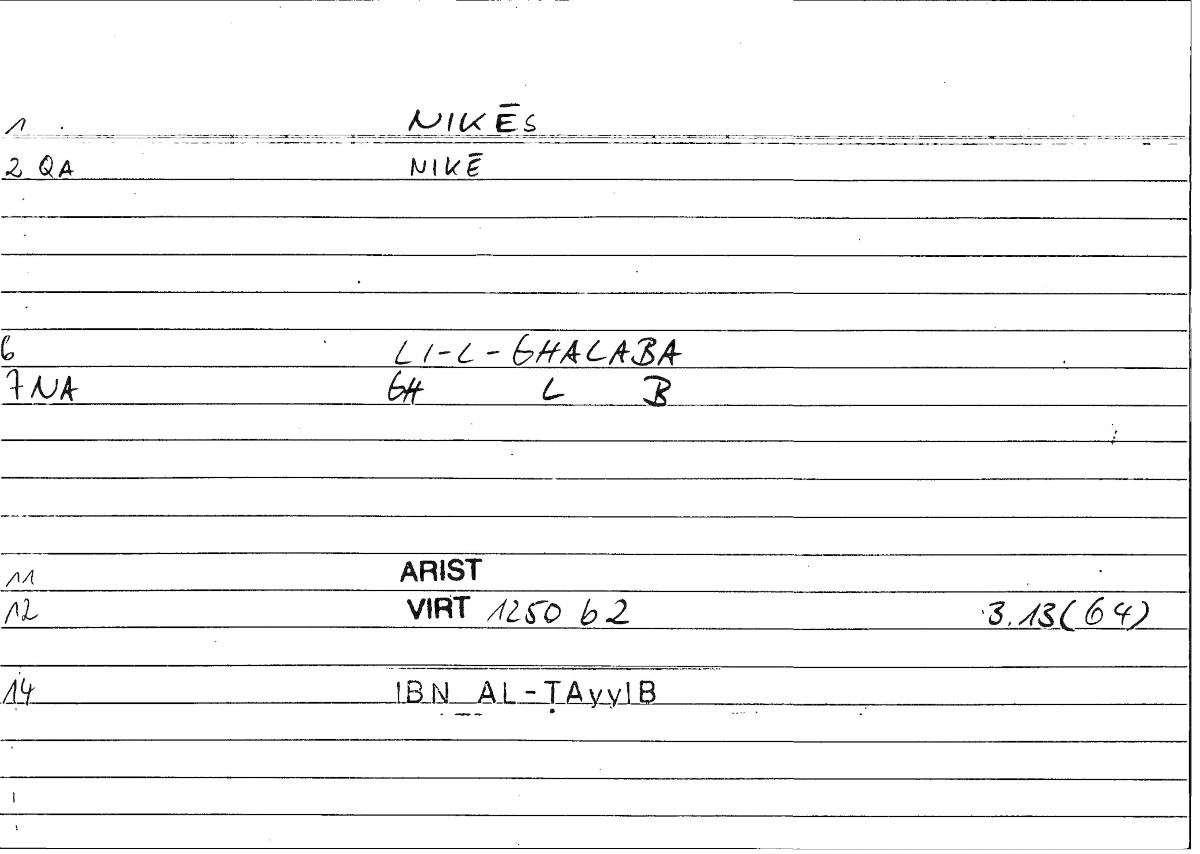 1 NIKĒS
2 QA NIKĒ
6 LI-L-GHALABA
7 NA GH L B
11 ARIST
12 VIRT 1250 b 2 3.13(64)
14 IBN AL-ṬAyyIB